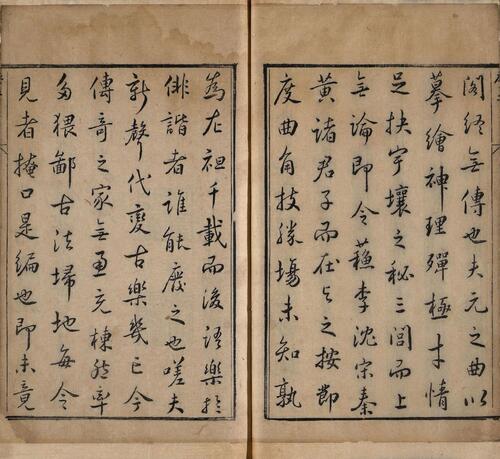 閣終無傳也夫元之曲以
摹繪神理殫極才情
足抉宇壤之秘三閭而上
無論即令蘇李沈宋秦
黃諸君子而在與之按節
度曲角技勝場未知孰
為左袒千載而後語樂於
俳諧者誰能廢之也嗟夫
新聲代變古樂幾亡今
傳奇之家無慮充棟然率
多猥鄙古法掃地每令
見者掩口是編也即未竟